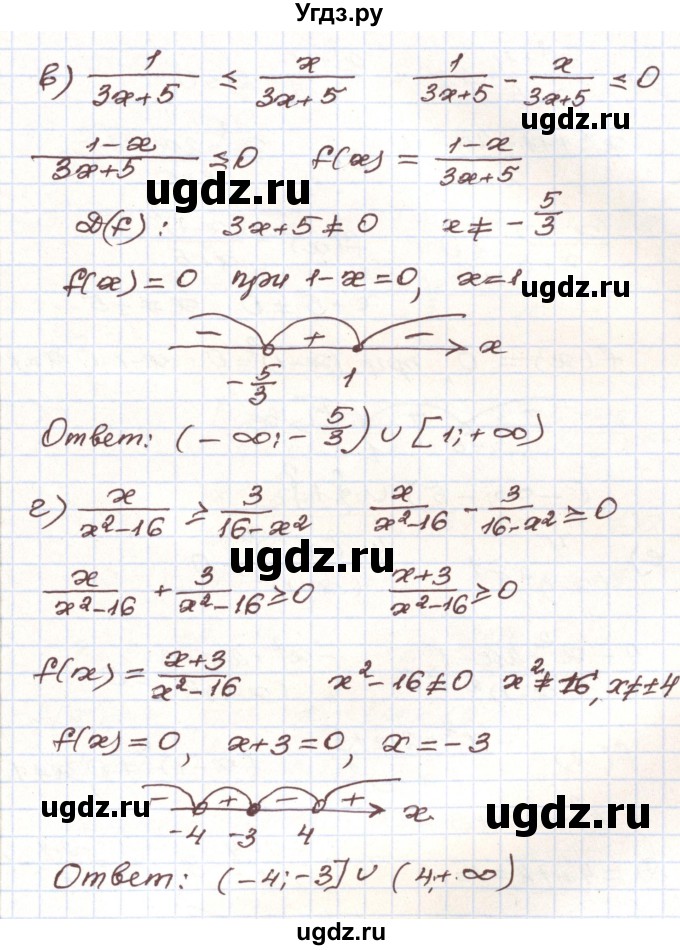 Угдз.ру
в) 1/(3x+5) ≤ x/(3x+5)   1/(3x+5) - x/(3x+5) ≤ 0
ugdz.ru
(1-x)/(3x+5) ≤ 0   f(x) = (1-x)/(3x+5)
ugdz.ru
D(f): 3x+5≠0   x≠ -5/3
f(x)=0 при 1-x=0, x=1
ugdz.ru
- + - x
-5/3 1
Ответ: (-∞; -5/3) ∪ [1; +∞)
г) x/(x²-16) ≥ 3/(16-x²)   x/(x²-16) - 3/(16-x²) ≥ 0
ugdz.ru
x/(x²-16) + 3/(x²-16) ≥ 0   (x+3)/(x²-16) ≥ 0
f(x) = (x+3)/(x²-16)   x²-16≠0   x²≠16, x≠±4
f(x)=0, x+3=0, x=-3
- + - + x
ugdz.ru ugdz.ru
-4 -3 4
Ответ: (-4; -3] ∪ (4; +∞)
ugdz.ru